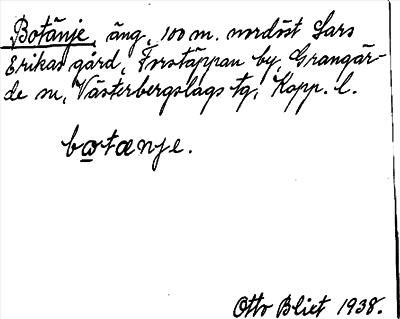 Botänje, äng, 100 m. nordöst Lars
Erikas gård, Forstäppan by, Grangär-
de sn, Västerbergslags tg, Kopp. l.
botænje.
Otto Blixt 1938.